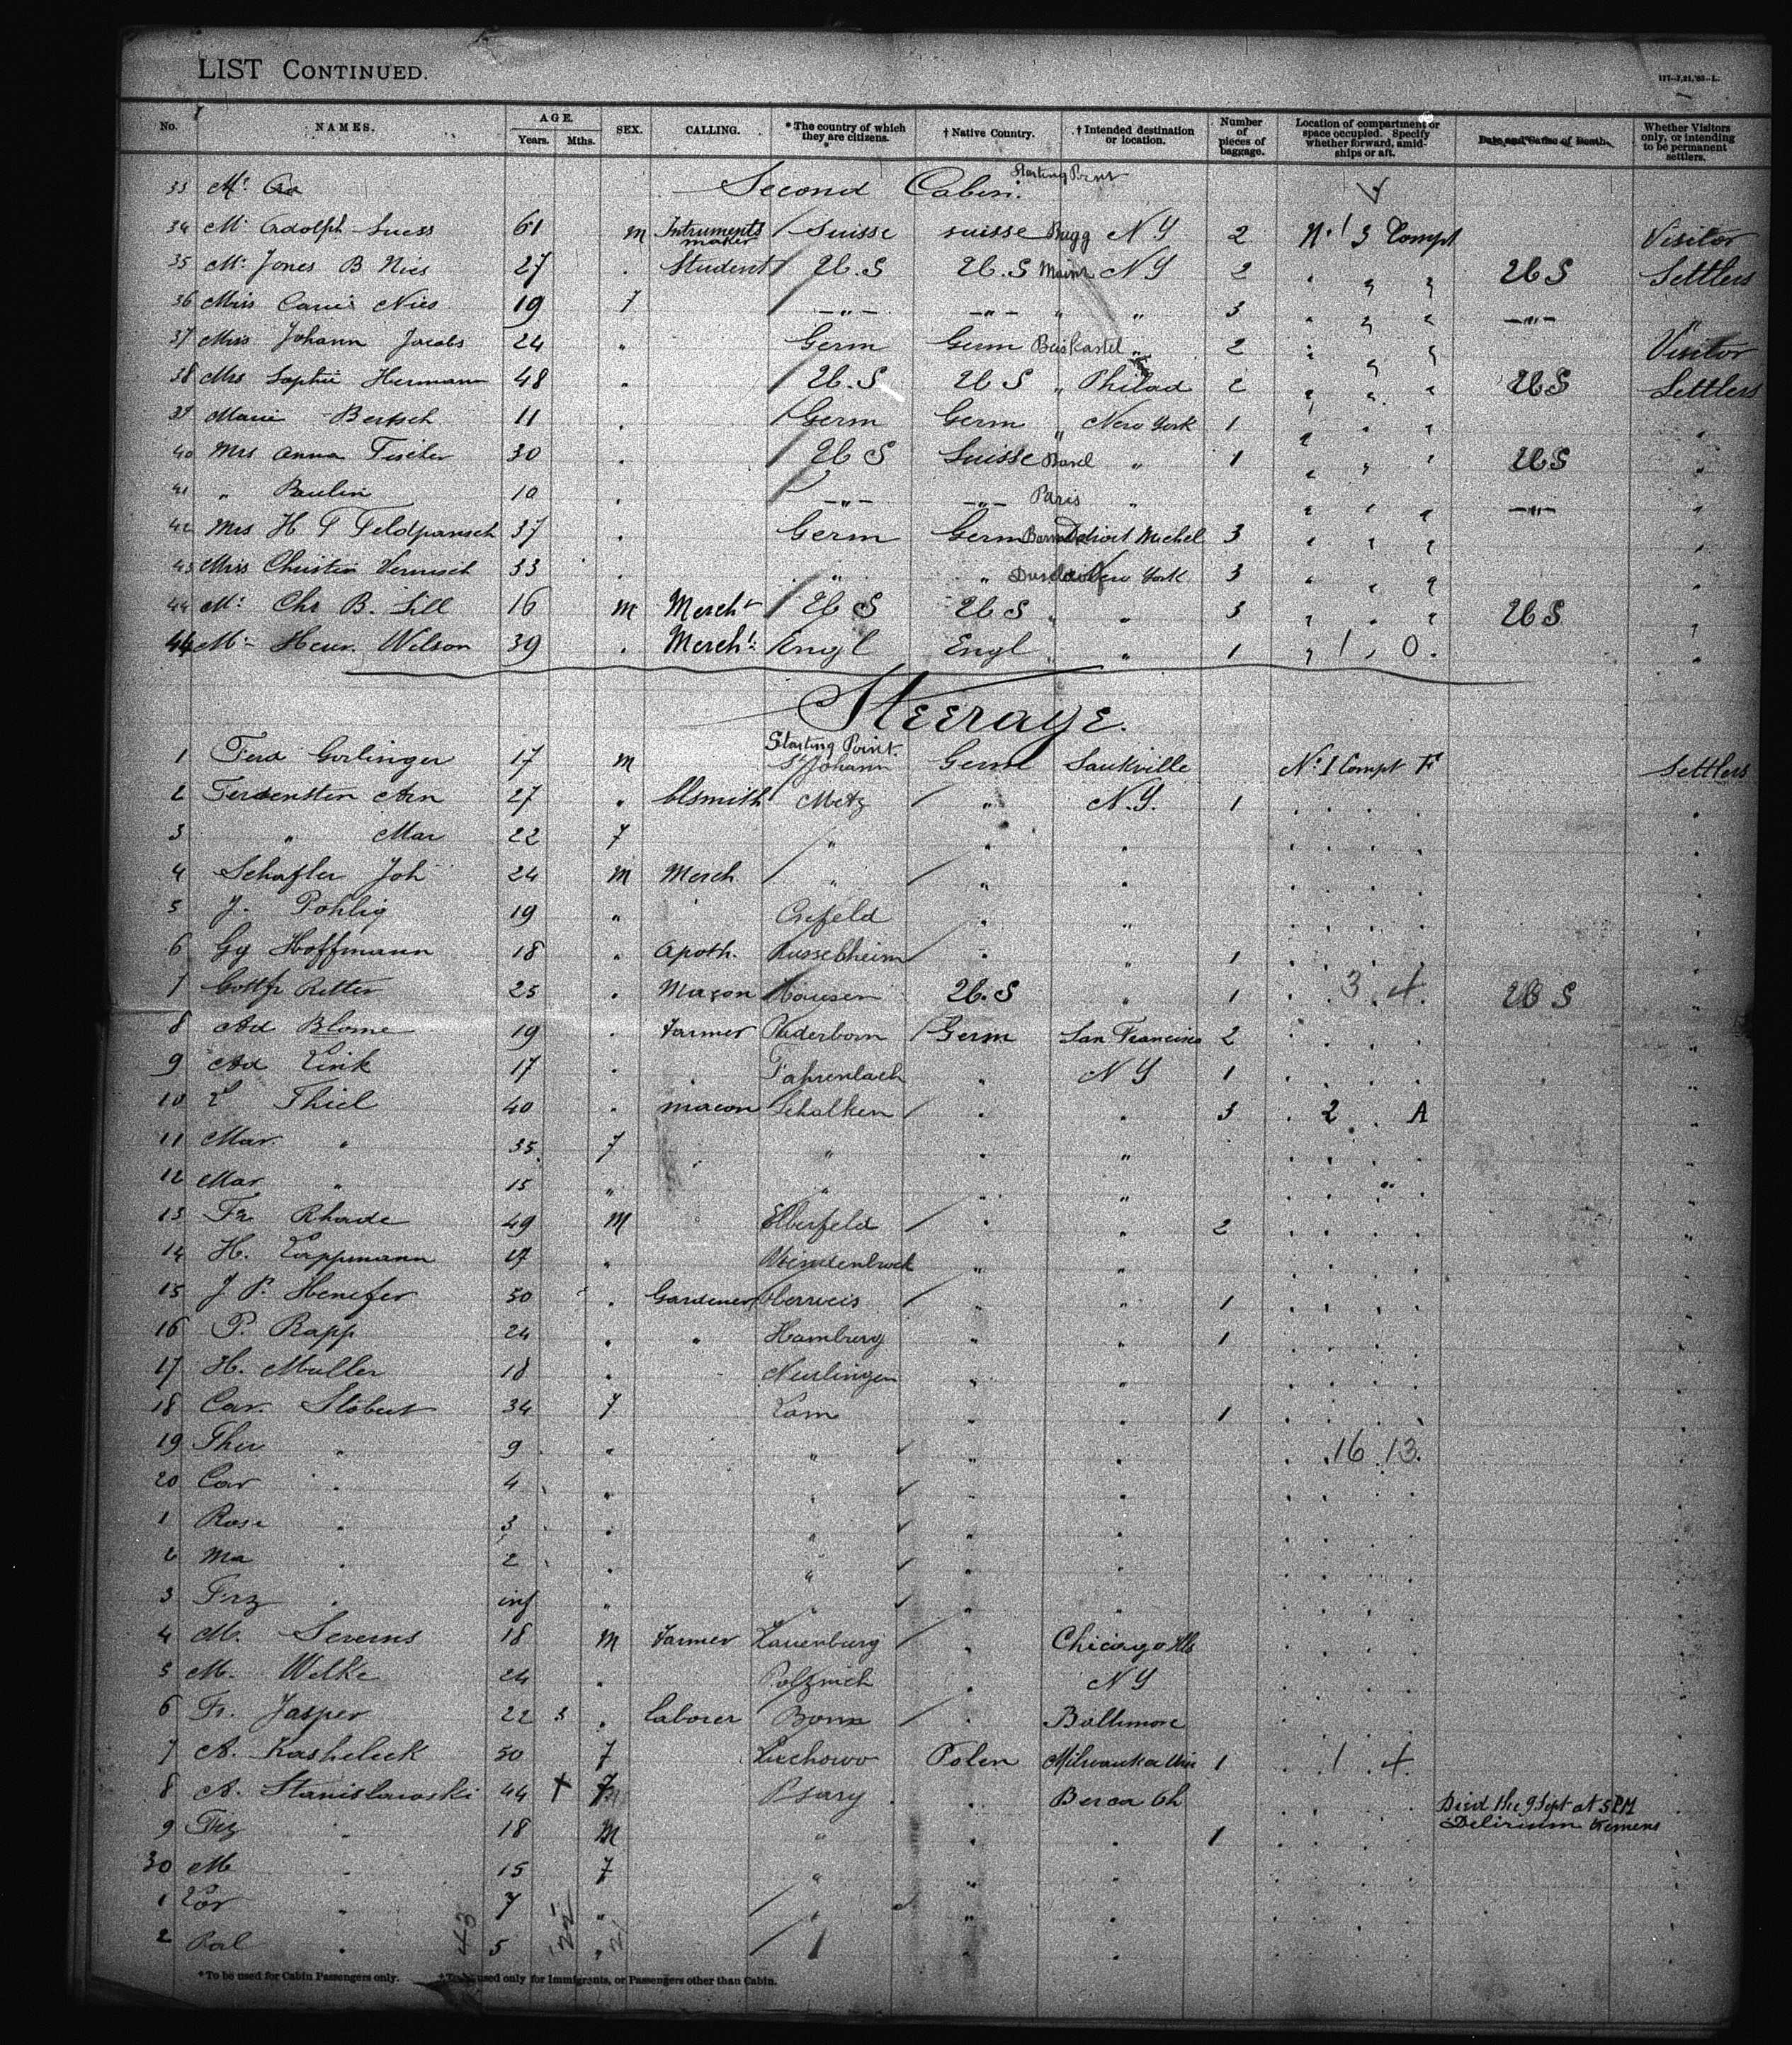 LIST CONTINUED.
117--7,21,'93--L.
No. NAMES. AGE. Years. Mths. SEX. CALLING. *The country of which they are citizens. † Native Country. † Intended destination or location. Number of pieces of baggage. Location of compartment or space occupied. Specify whether forward, amidships or aft. Date and Cause of Death. Whether Visitors only, or intending to be permanent settlers.
33 Mr. Second Cabin. Starting Point
34 Mr. Adolph Suess 61 m Intruments maker Suisse suisse Bugg NY 2 No. 1 3 Compt Visitor
35 Mr. Jones B Nies 27 . Student U.S U.S Mainz NY 2 " " " US Settlers
36 Miss Carrie Nies 19 f -"- -"- " " 3 " " " -"- "
37 Miss Johann Jacobs 24 " Germ Germ " 2 " " " Visitor
38 Mrs Sophie Hermann 48 . U.S U S " Philad 2 " " " US Settlers
39 Marie Bertsch 11 . Germ Germ " New York 1 " " " "
40 Mrs Anna Fischer 30 . U S Suisse Basel " 1 " " " US "
41 " Paulin 10 . -"- -"- Paris " " " " -"- "
42 Mrs H T Feldpausch 37 . Germ Germ Detroit Michel 3 " " " "
43 Miss Christin 33 . " " New York 3 " " " "
44 Mr. Chs B. Sill 16 m Mercht U S U S " " 3 " " " US "
44 Mr. Henr. Wilson 39 . Mercht. Engl Engl " " 1 " 1 , 0. "
Steerage.
Starting Point.
1 Ferd Gorlinger 17 m St Johann Germ Saukville No. 1 Compt F Settlers
2 Arn 27 " blsmith Metz " N.Y. 1 . . . "
3 " Mar 22 f " " " . . . "
4 Schafler Joh 24 m Merch " " " . . . "
5 J. Pohlig 19 " " Crefeld " " . . . "
6 Gg Hoffmann 18 " Apoth. Russelsheim " " 1 . . . "
7 Gottfr Ritter 25 . Mason Hausen U.S " 1 . 3 . 4. US "
8 Ad Blome 19 . Farmer Paderborn Germ San Francisco 2 . . . "
9 Ad Link 17 . . Fahrenbach " NY 1 . . . "
10 L Thiel 40 . macon Schalken . " 3 . 2 A "
11 Mar. " 35. f . " " " . . . "
12 Mar " 15 " " " " . . . "
13 Fr. Rhode 49 M Elberfeld " " 2 . . . "
14 H. Lappmann 17 " " " . . . "
15 J. P. Henefer 50 . Gardener " " 1 . . . "
16 P. Rapp 24 . " Hamburg " " 1 . . . "
17 H. Muller 18 . " " . . . "
18 Car. 34 f Lam " " 1 . . . "
19 Ther " 9 . " " " . . 16 . 13. "
20 Car " 4 " " " " . . . "
1 Rosi " 3 . " " " . . . "
2 Ma " 2 . " " " . . . "
3 Frz " inf " " " " . . . "
4 M. Severns 18 m Farmer Lauenburg " Chicago Ills . . . "
5 M. Welke 24 . Polzmich " NY . . . "
6 Fr. Jasper 22 3 " laborer Bonn . Baltimore . . . "
7 A. Kasheleck 50 f Luchowo Polen Milwaukee Wis 1 . 1 . 4. "
8 A. Stanislawski 44 + m Psary . Berea Oh . . . Died the 9 Sept at 5 PM "
Delirium tremens
9 Frz " 18 M " " . 1 . . . "
30 M " 15 f " " . . . . "
1 " 7 " " " . . . . "
2 " 5 " " . . . . "
43 22 21
*To be used for Cabin Passengers only. †To be used only for Immigrants, or Passengers other than Cabin.